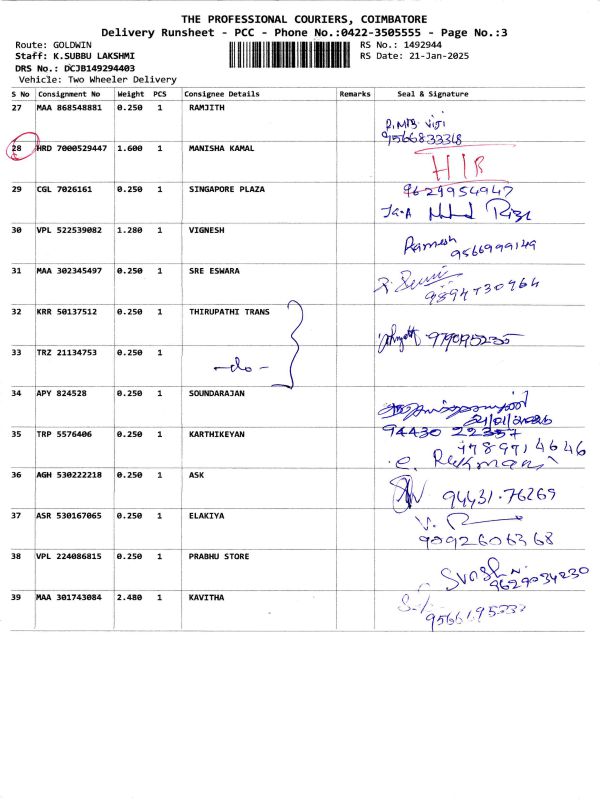 THE PROFESSIONAL COURIERS, COIMBATORE
Delivery Runsheet - PCC - Phone No.:0422-3505555 - Page No.:3
Route: GOLDWIN RS No.: 1492944
Staff: K.SUBBU LAKSHMI RS Date: 21-Jan-2025
DRS No.: DCJB149294403
Vehicle: Two Wheeler Delivery
S No Consignment No Weight PCS Consignee Details Remarks Seal & Signature
27 MAA 868548881 0.250 1 RAMJITH
9566833318
28 HRD 7000529447 1.600 1 MANISHA KAMAL
29 CGL 7026161 0.250 1 SINGAPORE PLAZA 9629954947
30 VPL 522539082 1.280 1 VIGNESH Ramesh
9566999149
31 MAA 302345497 0.250 1 SRE ESWARA
9894730964
32 KRR 50137512 0.250 1 THIRUPATHI TRANS
33 TRZ 21134753 0.250 1
-do-
34 APY 824528 0.250 1 SOUNDARAJAN
94430 22357
35 TRP 5576406 0.250 1 KARTHIKEYAN
36 AGH 530222218 0.250 1 ASK
94431.76269
37 ASR 530167065 0.250 1 ELAKIYA
9092606368
38 VPL 224086815 0.250 1 PRABHU STORE
9629034230
39 MAA 301743084 2.480 1 KAVITHA